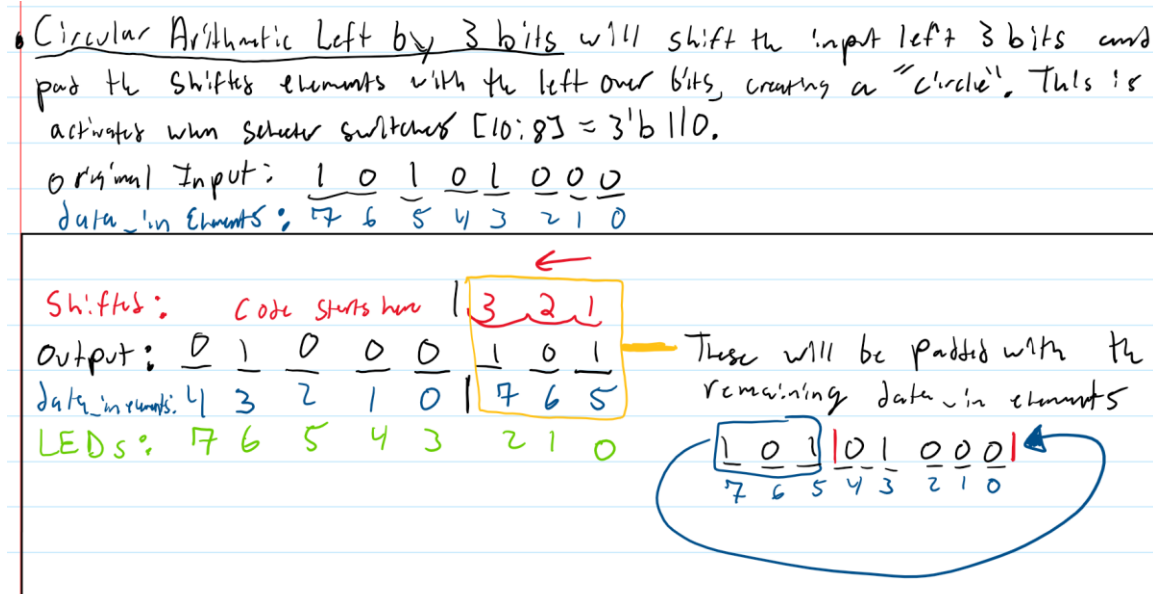 • Circular Arithmetic Left by 3 bits will shift the input left 3 bits and
pad the shifted elements with the left over bits, creating a "circle". This is
activated when selector switches [10:8] = 3'b110.
original Input: 1 0 1 0 1 0 0 0
data_in Elements: 7 6 5 4 3 2 1 0
Shifted: Code starts here | 3 2 1
Output: 0 1 0 0 0 1 0 1
These will be padded with the
data_in elements: 4 3 2 1 0 | 7 6 5
remaining data_in elements
LEDs: 7 6 5 4 3 2 1 0
1 0 1 | 0 1 0 0 0 |
7 6 5 4 3 2 1 0